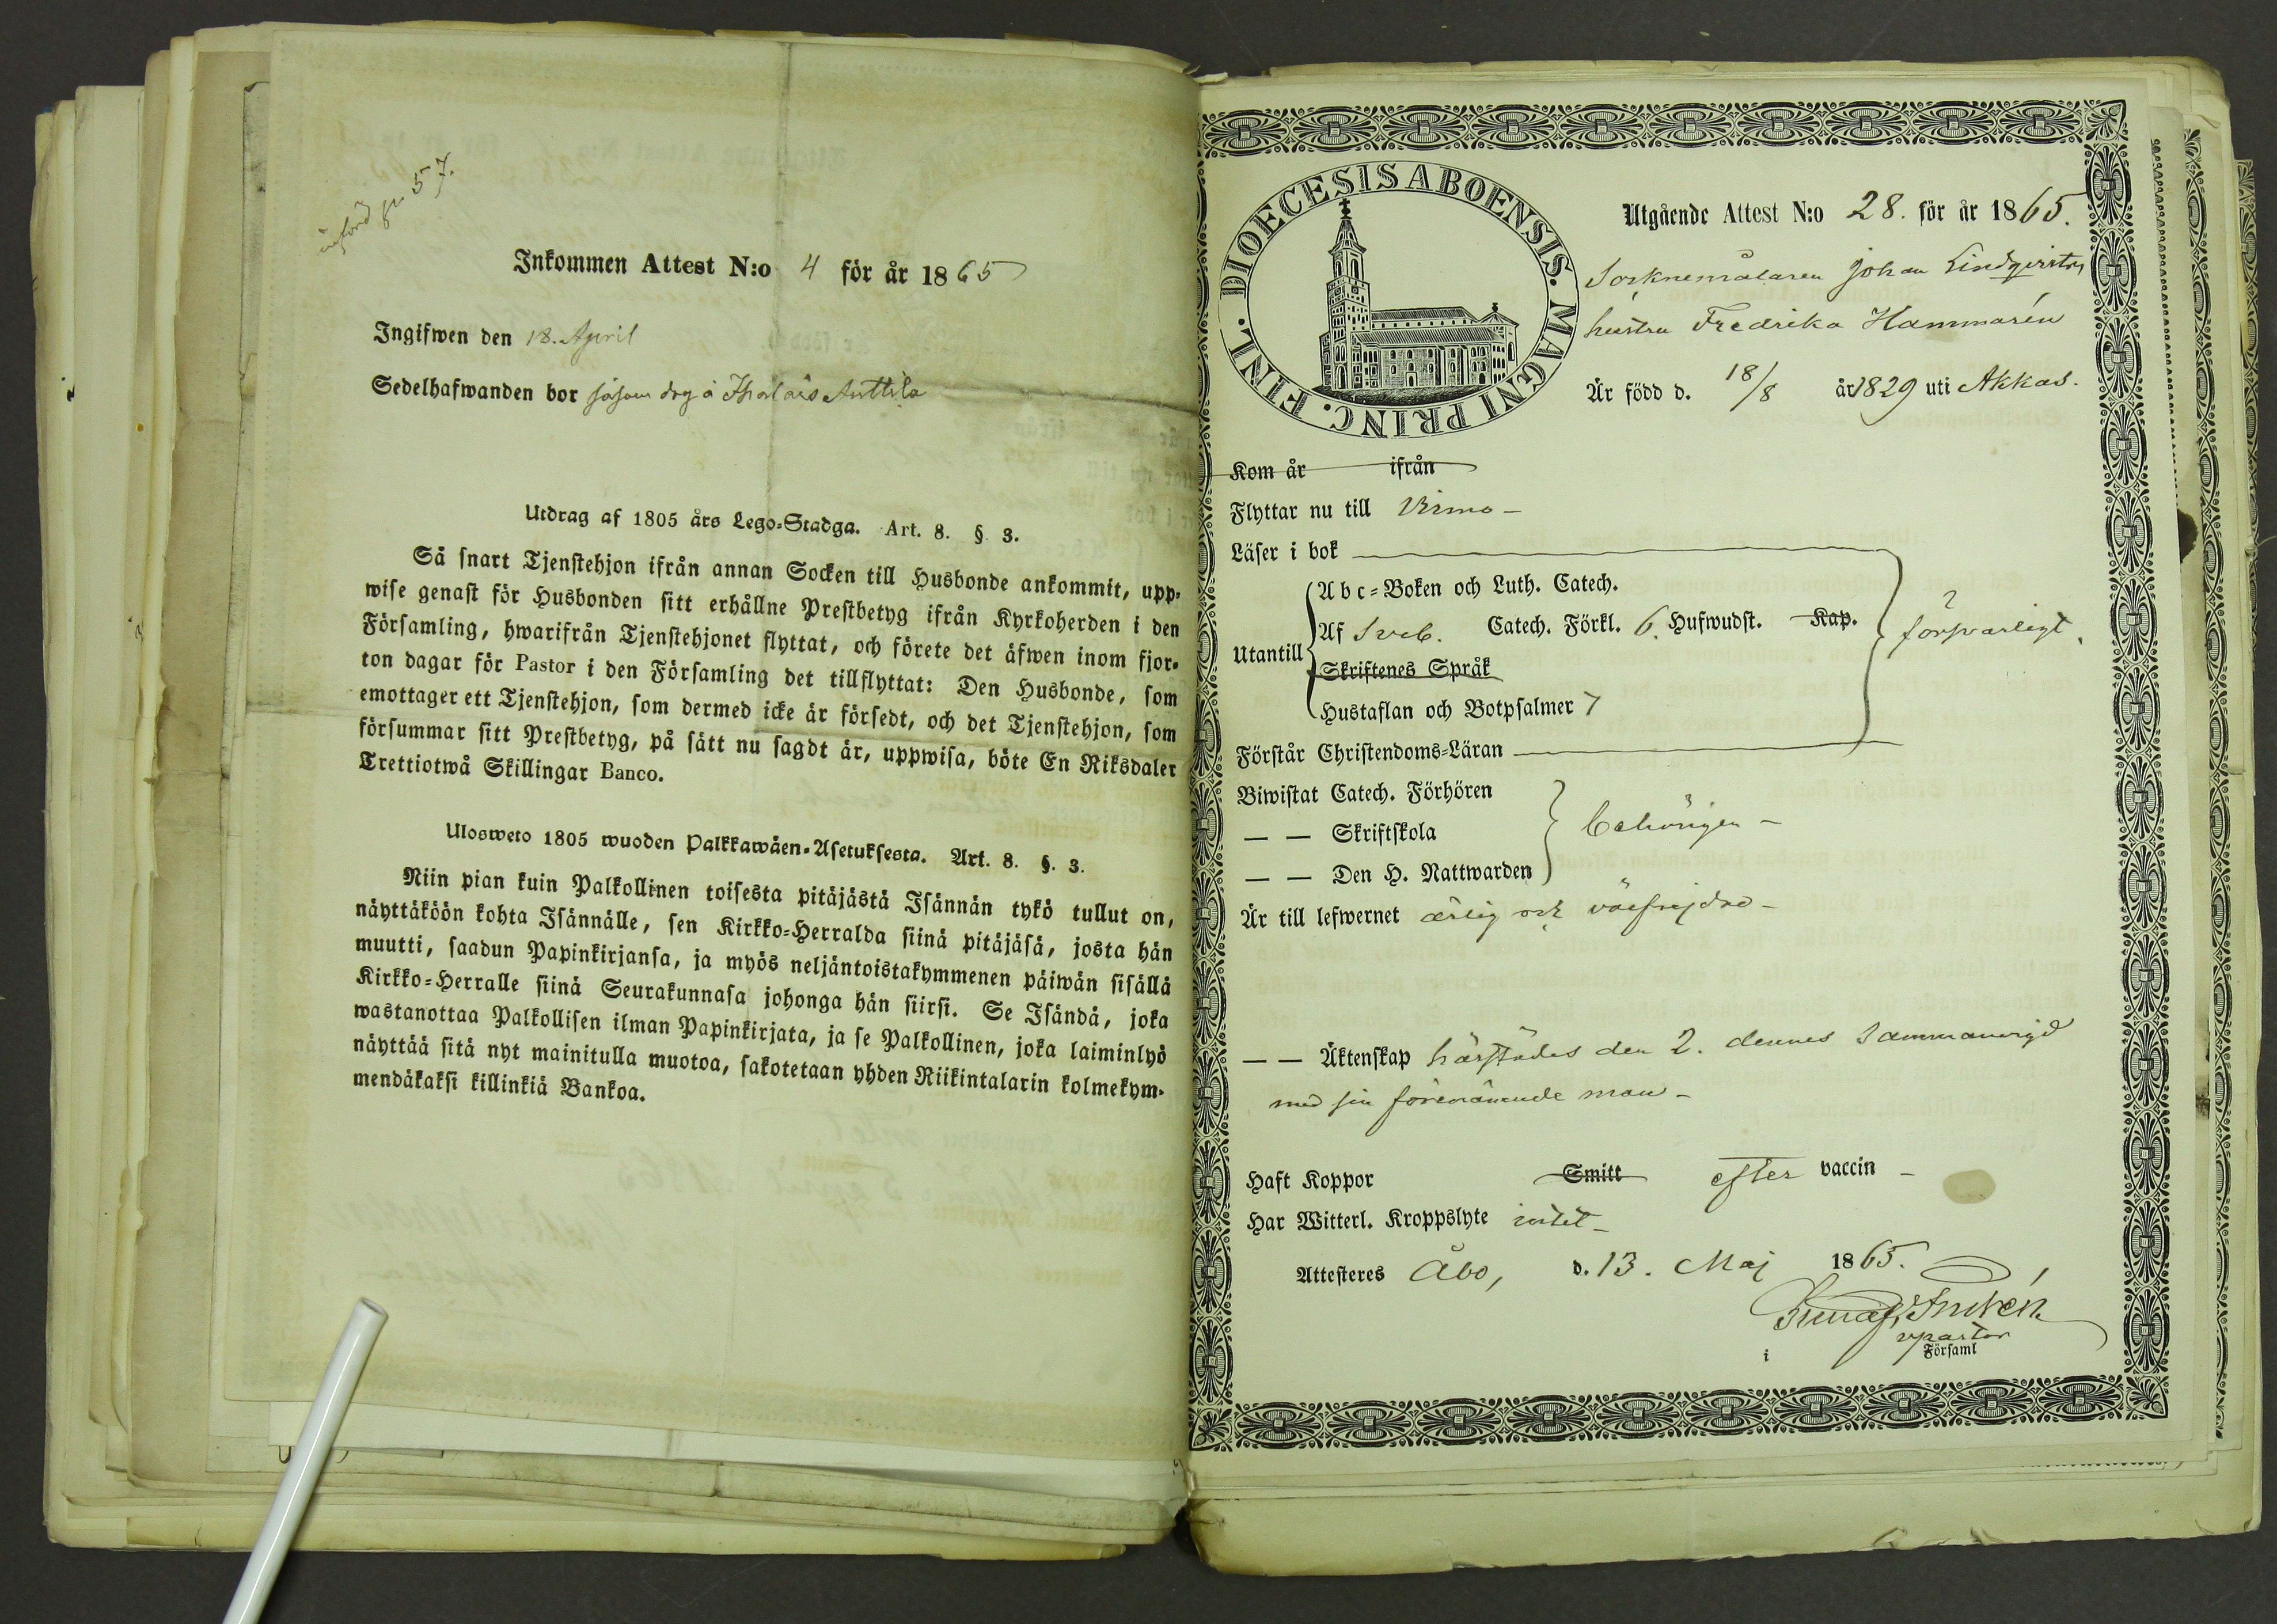 införd pr. 57.
Inkommen Attest N:o 4 för år 1865
Ingifwen den 18. April
Sedelhafwanden bor såsom drg å Anttila
Utdrag af 1805 års Lego-Stadga. Art. 8. § 3.
Så snart Tjenstehjon ifrån annan Socken till Husbonde ankommit, upp-
wise genast för Husbonden sitt erhållne Prestbetyg ifrån Kyrkoherden i den
Församling, hwarifrån Tjenstehjonet flyttat, och förete det äfwen inom fjor-
ton dagar för Pastor i den Församling det tillflyttat: Den Husbonde, som
emottager ett Tjenstehjon, som dermed icke är försedt, och det Tjenstehjon, som
försummar sitt Prestbetyg, på sätt nu sagdt är, uppwisa, böte En Riksdaler
Trettiotwå Skillingar Banco.
Ulosweto 1805 wuoden Palkkawäen-Asetuksesta. Art. 8. §. 3.
Niin pian kuin Palkollinen toisesta pitäjästä Isännän tykö tullut on,
näyttäköön kohta Isännälle, sen Kirkko-Herralda siinä pitäjäsä, josta hän
muutti, saadun Papinkirjansa, ja myös neljäntoistakymmenen päiwän sisällä
Kirkko-Herralle siinä Seurakunnasa johonga hän siirsi. Se Isändä, joka
wastanottaa Palkollisen ilman Papinkirjata, ja se Palkollinen, joka laiminlyö
näyttää sitä nyt mainitulla muotoa, sakotetaan yhden Riikintalarin kolmekym-
mendäkaksi killinkiä Bankoa.
DIOECESIS ABOENSIS. MAGNI PRINC. FINL.
Utgående Attest N:o 28. för år 1865.
Socknemålaren Johan Lindqvists
hustru Fredrika Hammarén
Är född d. 18/8 år 1829 uti Akkas.
Kom år ifrån
Flyttar nu till Virmo –
Läser i bok
Abc-Boken och Luth. Catech.
Utantill Af Sveb. Catech. Förkl. 6. Hufwudst. Kap. försvarligt.
Skriftenes Språk
Hustaflan och Botpsalmer 7
Förstår Christendoms-Läran
Biwistat Catech. Förhören
— — Skriftskola behörigen –
— — Den H. Nattwarden
Är till lefwernet ärlig och välfrejdad –
— — Äktenskap härstädes den 2. dennes sammanvigd
med sin förenämnde man –
Haft Koppor Smitt efter vaccin –
Har Witterl. Kroppslyte intet –
Attesteres Åbo, d. 13. Maj 1865.
vpastor
i Församl